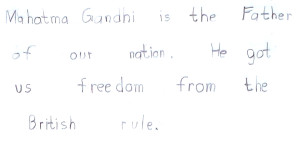 Mahatma Gandhi is the Father
of our nation. He got
us freedom from the
British rule.